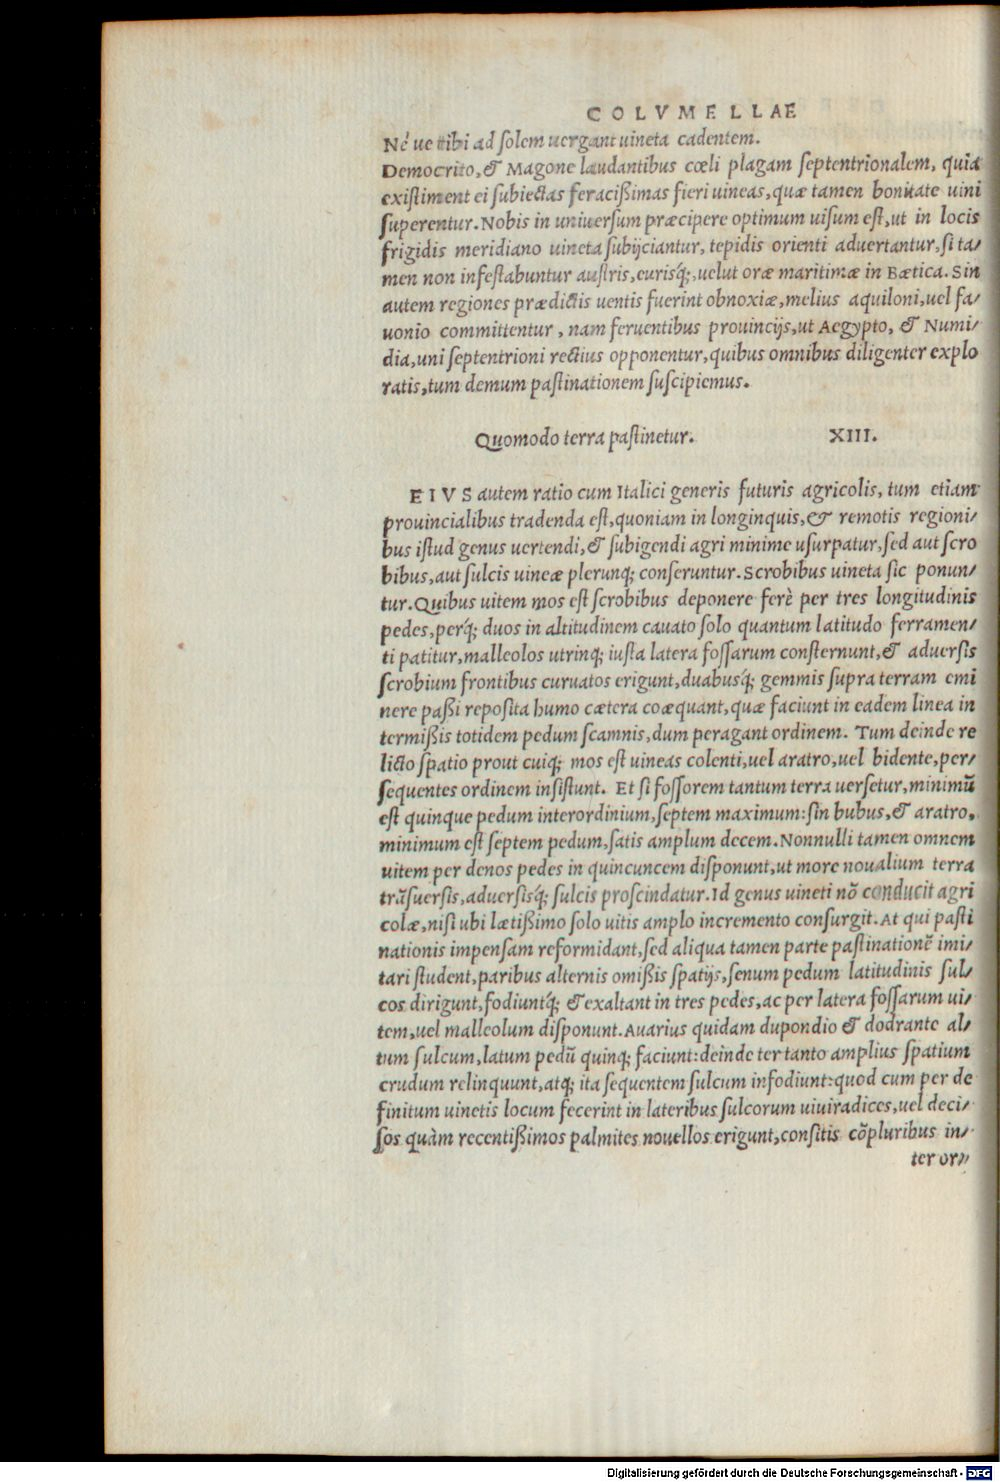 COLVMELLAE
Né ue tibi ad ſolem uergant uineta cadentem.
Democrito, & Magone laudantibus cœli plagam ſeptentrionalem, quia
exiſtiment ei ſubiectas feracißimas fieri uineas, quæ tamen bonitate uini
ſuperentur. Nobis in uniuerſum præcipere optimum uiſum eſt, ut in locis
frigidis meridiano uineta ſubijciantur, tepidis orienti aduertantur, ſi ta/
men non infeſtabuntur auſtris, eurisq́;, uelut oræ maritimæ in Bætica. Sin
autem regiones prædictis uentis fuerint obnoxiæ, melius aquiloni, uel fa/
uonio committentur, nam feruentibus prouincijs, ut Aegypto, & Numi/
dia, uni ſeptentrioni rectius opponentur, quibus omnibus diligenter explo
ratis, tum demum paſtinationem ſuſcipiemus.
Quomodo terra paſtinetur. XIII.
EIVS autem ratio cum Italici generis futuris agricolis, tum etiam
prouincialibus tradenda eſt, quoniam in longinquis, & remotis regioni/
bus iſtud genus uertendi, & ſubigendi agri minime uſurpatur, ſed aut ſcro
bibus, aut ſulcis uineæ plerunq; conſeruntur. Scrobibus uineta ſic ponun/
tur. Quibus uitem mos eſt ſcrobibus deponere ferè per tres longitudinis
pedes, perq́; duos in altitudinem cauato ſolo quantum latitudo ferramen/
ti patitur, malleolos utrinq; iuſta latera foſſarum conſternunt, & aduerſis
ſcrobium frontibus curuatos erigunt, duabusq́; gemmis ſupra terram emi
nere paßi repoſita humo cætera coæquant, quæ faciunt in eadem linea in
termißis totidem pedum ſcamnis, dum peragant ordinem. Tum deinde re
licto ſpatio prout cuiq; mos eſt uineas colenti, uel aratro, uel bidente, per/
ſequentes ordinem inſiſtunt. Et ſi foſſorem tantum terra uerſetur, minimũ
eſt quinque pedum interordinium, ſeptem maximum: ſin bubus, & aratro,
minimum eſt ſeptem pedum, ſatis amplum decem. Nonnulli tamen omnem
uitem per denos pedes in quincuncem diſponunt, ut more noualium terra
trãſuerſis, aduerſisq́; ſulcis proſcindatur. Id genus uineti nõ conducit agri
colæ, niſi ubi lætißimo ſolo uitis amplo incremento conſurgit. At qui paſti
nationis impenſam reformidant, ſed aliqua tamen parte paſtinationẽ imi/
tari ſtudent, paribus alternis omißis ſpatijs, ſenum pedum latitudinis ſul/
cos dirigunt, fodiuntq́; & exaltant in tres pedes, ac per latera foſſarum ui/
tem, uel malleolum diſponunt. Auarius quidam dupondio & dodrante al/
tum ſulcum, latum pedũ quinq; faciunt: deinde ter tanto amplius ſpatium
crudum relinquunt, atq; ita ſequentem ſulcum infodiunt: quod cum per de
finitum uinetis locum fecerint in lateribus ſulcorum uiuiradices, uel deci/
ſos quàm recentißimos palmites nouellos erigunt, conſitis cõpluribus in/
ter or/
Digitalisierung gefördert durch die Deutsche Forschungsgemeinschaft - DFG